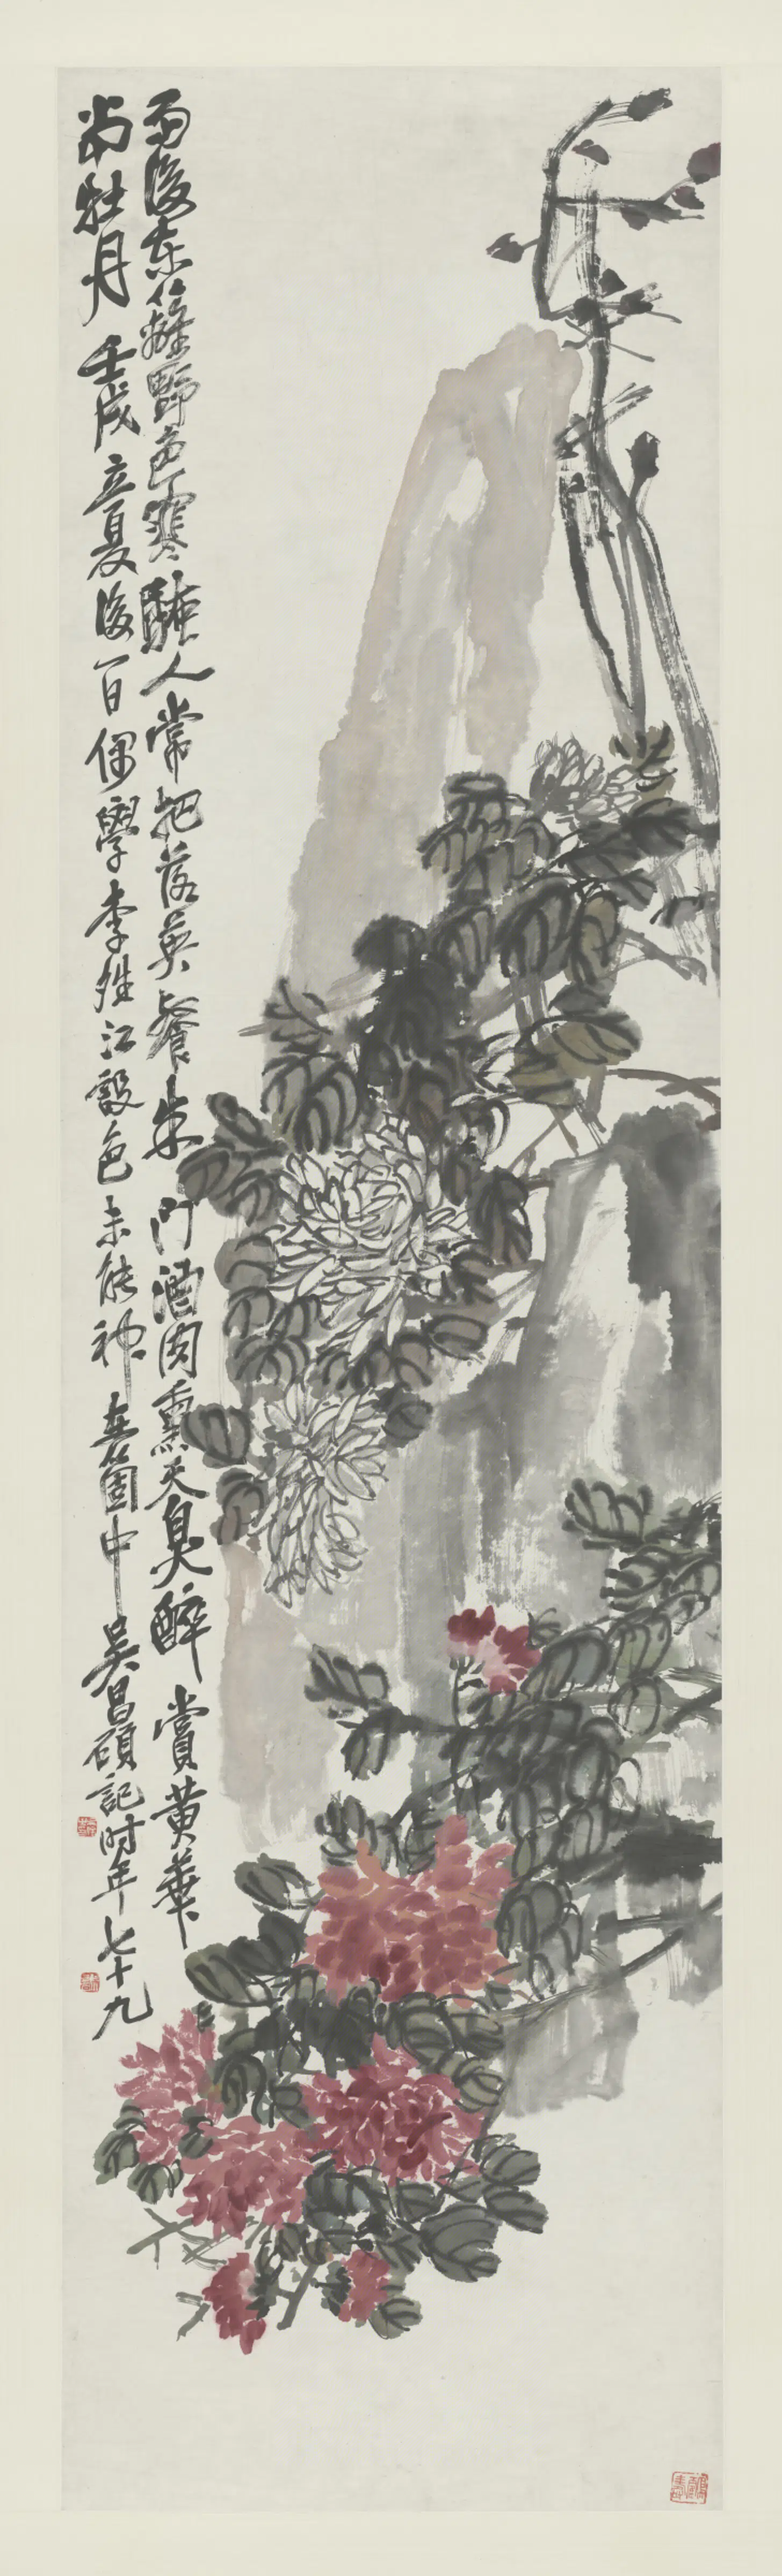 雨後東籬野色寒騷人常把落英餐朱門酒肉熏天臭醉賞黃華
當牡丹壬戌立夏後一日偶學李復堂設色未能神在箇中吳昌碩記時年七十九